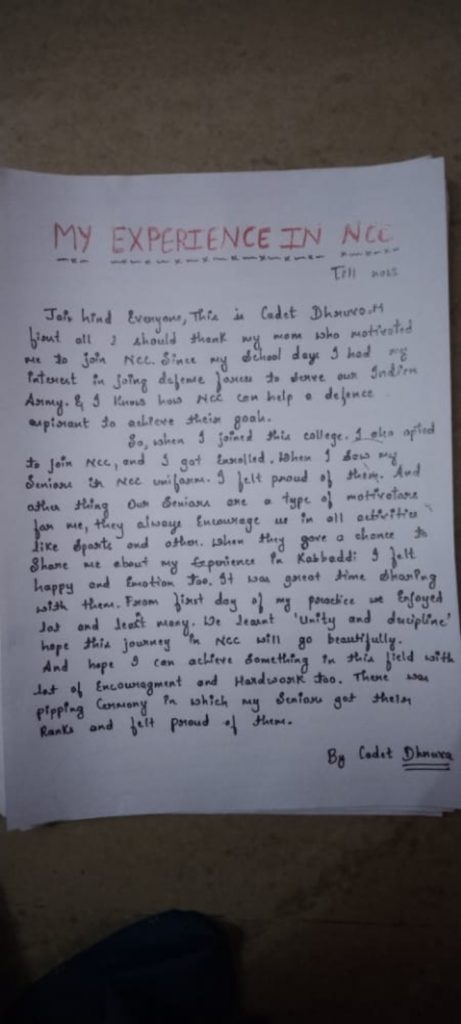 MY EXPERIENCE IN NCC
Till now
Jai hind Everyone, This is Cadet Dhruva.M
first all I should thank my mom who motivated
me to join NCC. Since my School days I had my
interest in joing defence forces to serve our Indian
Army. & I know how NCC can help a defence
aspirant to achieve their goal.
So, when I joined this college. I also opted
to join NCC, and I got Enrolled. When I saw my
Seniors in NCC uniform. I felt proud of them. And
other thing Our Seniors are a type of
for me, they always Encourage us in all activities
like Sports and other. When they gave a chance to
Share me about my Experience in Kabbaddi I felt
happy and Emotion too. It was great time Sharing
with them. From first day of my practice we Enjoyed
lot and many. We learnt 'Unity and
hope this journey in NCC will go beautifully.
And hope I can achieve Something in this field with
lot of Encouragment and Hardwork too. There was
pipping in which my Seniors got their
Ranks and felt proud of them.
By Cadet Dhruva